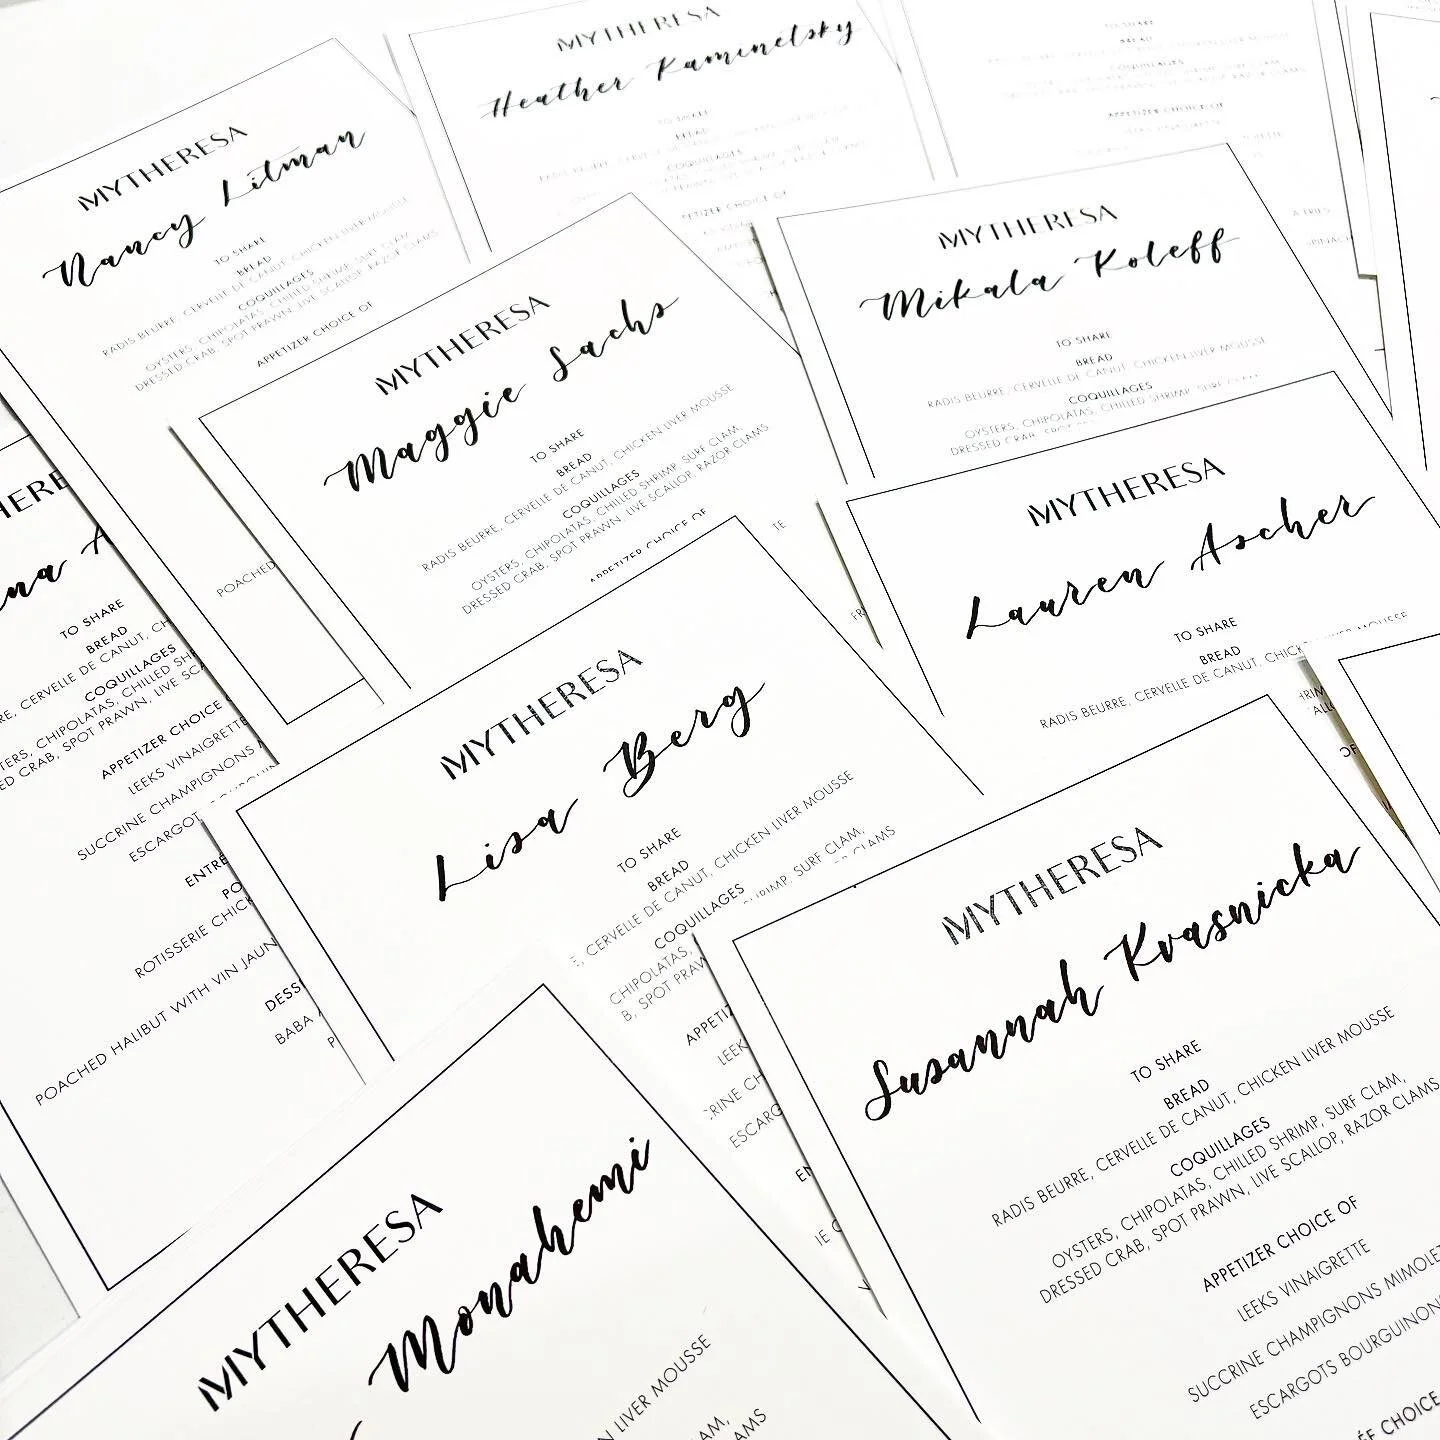 MYTHERESA
Nancy Litman
TO SHARE
BREAD
RADIS BEURRE, CERVELLE DE CANUT, CHICKEN LIVER MOUSSE
COQUILLAGES
OYSTERS, CHIPOLATAS, CHILLED SHRIMP, SURF CLAM,
DRESSED CRAB, SPOT PRAWN, LIVE SCALLOP, RAZOR CLAMS
APPETIZER CHOICE OF
POACHED
MYTHERESA
Heather Kaminetsky
TO SHARE
BREAD
COQUILLAGES
TO SHARE
BREAD
COQUILLAGES
APPETIZER CHOICE OF
MYTHERESA
Maggie Sachs
TO SHARE
BREAD
RADIS BEURRE, CERVELLE DE CANUT, CHICKEN LIVER MOUSSE
COQUILLAGES
OYSTERS, CHIPOLATAS, CHILLED SHRIMP, SURF CLAM,
DRESSED CRAB, SPOT PRAWN, LIVE SCALLOP, RAZOR CLAMS
APPETIZER CHOICE OF
MYTHERESA
Mikala Koleff
TO SHARE
BREAD
RADIS BEURRE, CERVELLE DE CANUT, CHICKEN LIVER MOUSSE
COQUILLAGES
OYSTERS, CHIPOLATAS, CHILLED SHRIMP, SURF CLAM,
DRESSED CRAB, SPOT
MYTHERESA
Lauren Ascher
TO SHARE
BREAD
RADIS BEURRE, CERVELLE DE CANUT, CHICKEN LIVER MOUSSE
HERE
na A
TO SHARE
BREAD
RE, CERVELLE DE CANUT, CH
COQUILLAGES
TERS, CHIPOLATAS, CHILLED SH
ED CRAB, SPOT PRAWN, LIVE SCA
APPETIZER CHOICE
LEEKS VINAIGRETTE
SUCCRINE CHAMPIGNONS
ESCARGOT
ENTRÉ
PO
ROTISSERIE CHICK
POACHED HALIBUT WITH VIN JAUN
DESS
BABA
MYTHERESA
Lisa Berg
TO SHARE
BREAD
E, CERVELLE DE CANUT, CHICKEN LIVER MOUSSE
COQUILLAGES
CHIPOLATAS, SHRIMP, SURF CLAM,
B, SPOT PRAW CLAMS
APPETIZ
LEEK
RINE CHA
ESCARG
EN
MYTHERESA
Susannah Krasnicka
TO SHARE
BREAD
RADIS BEURRE, CERVELLE DE CANUT, CHICKEN LIVER MOUSSE
COQUILLAGES
OYSTERS, CHIPOLATAS, CHILLED SHRIMP, SURF CLAM,
DRESSED CRAB, SPOT PRAWN, LIVE SCALLOP, RAZOR CLAMS
APPETIZER CHOICE OF
LEEKS VINAIGRETTE
SUCCRINE CHAMPIGNONS MIMOLET
ESCARGOTS BOURGUINON
ÉE CHOICE
MYTHERESA
Monahemi
N LIVER MOUSSE
AM,
AMS